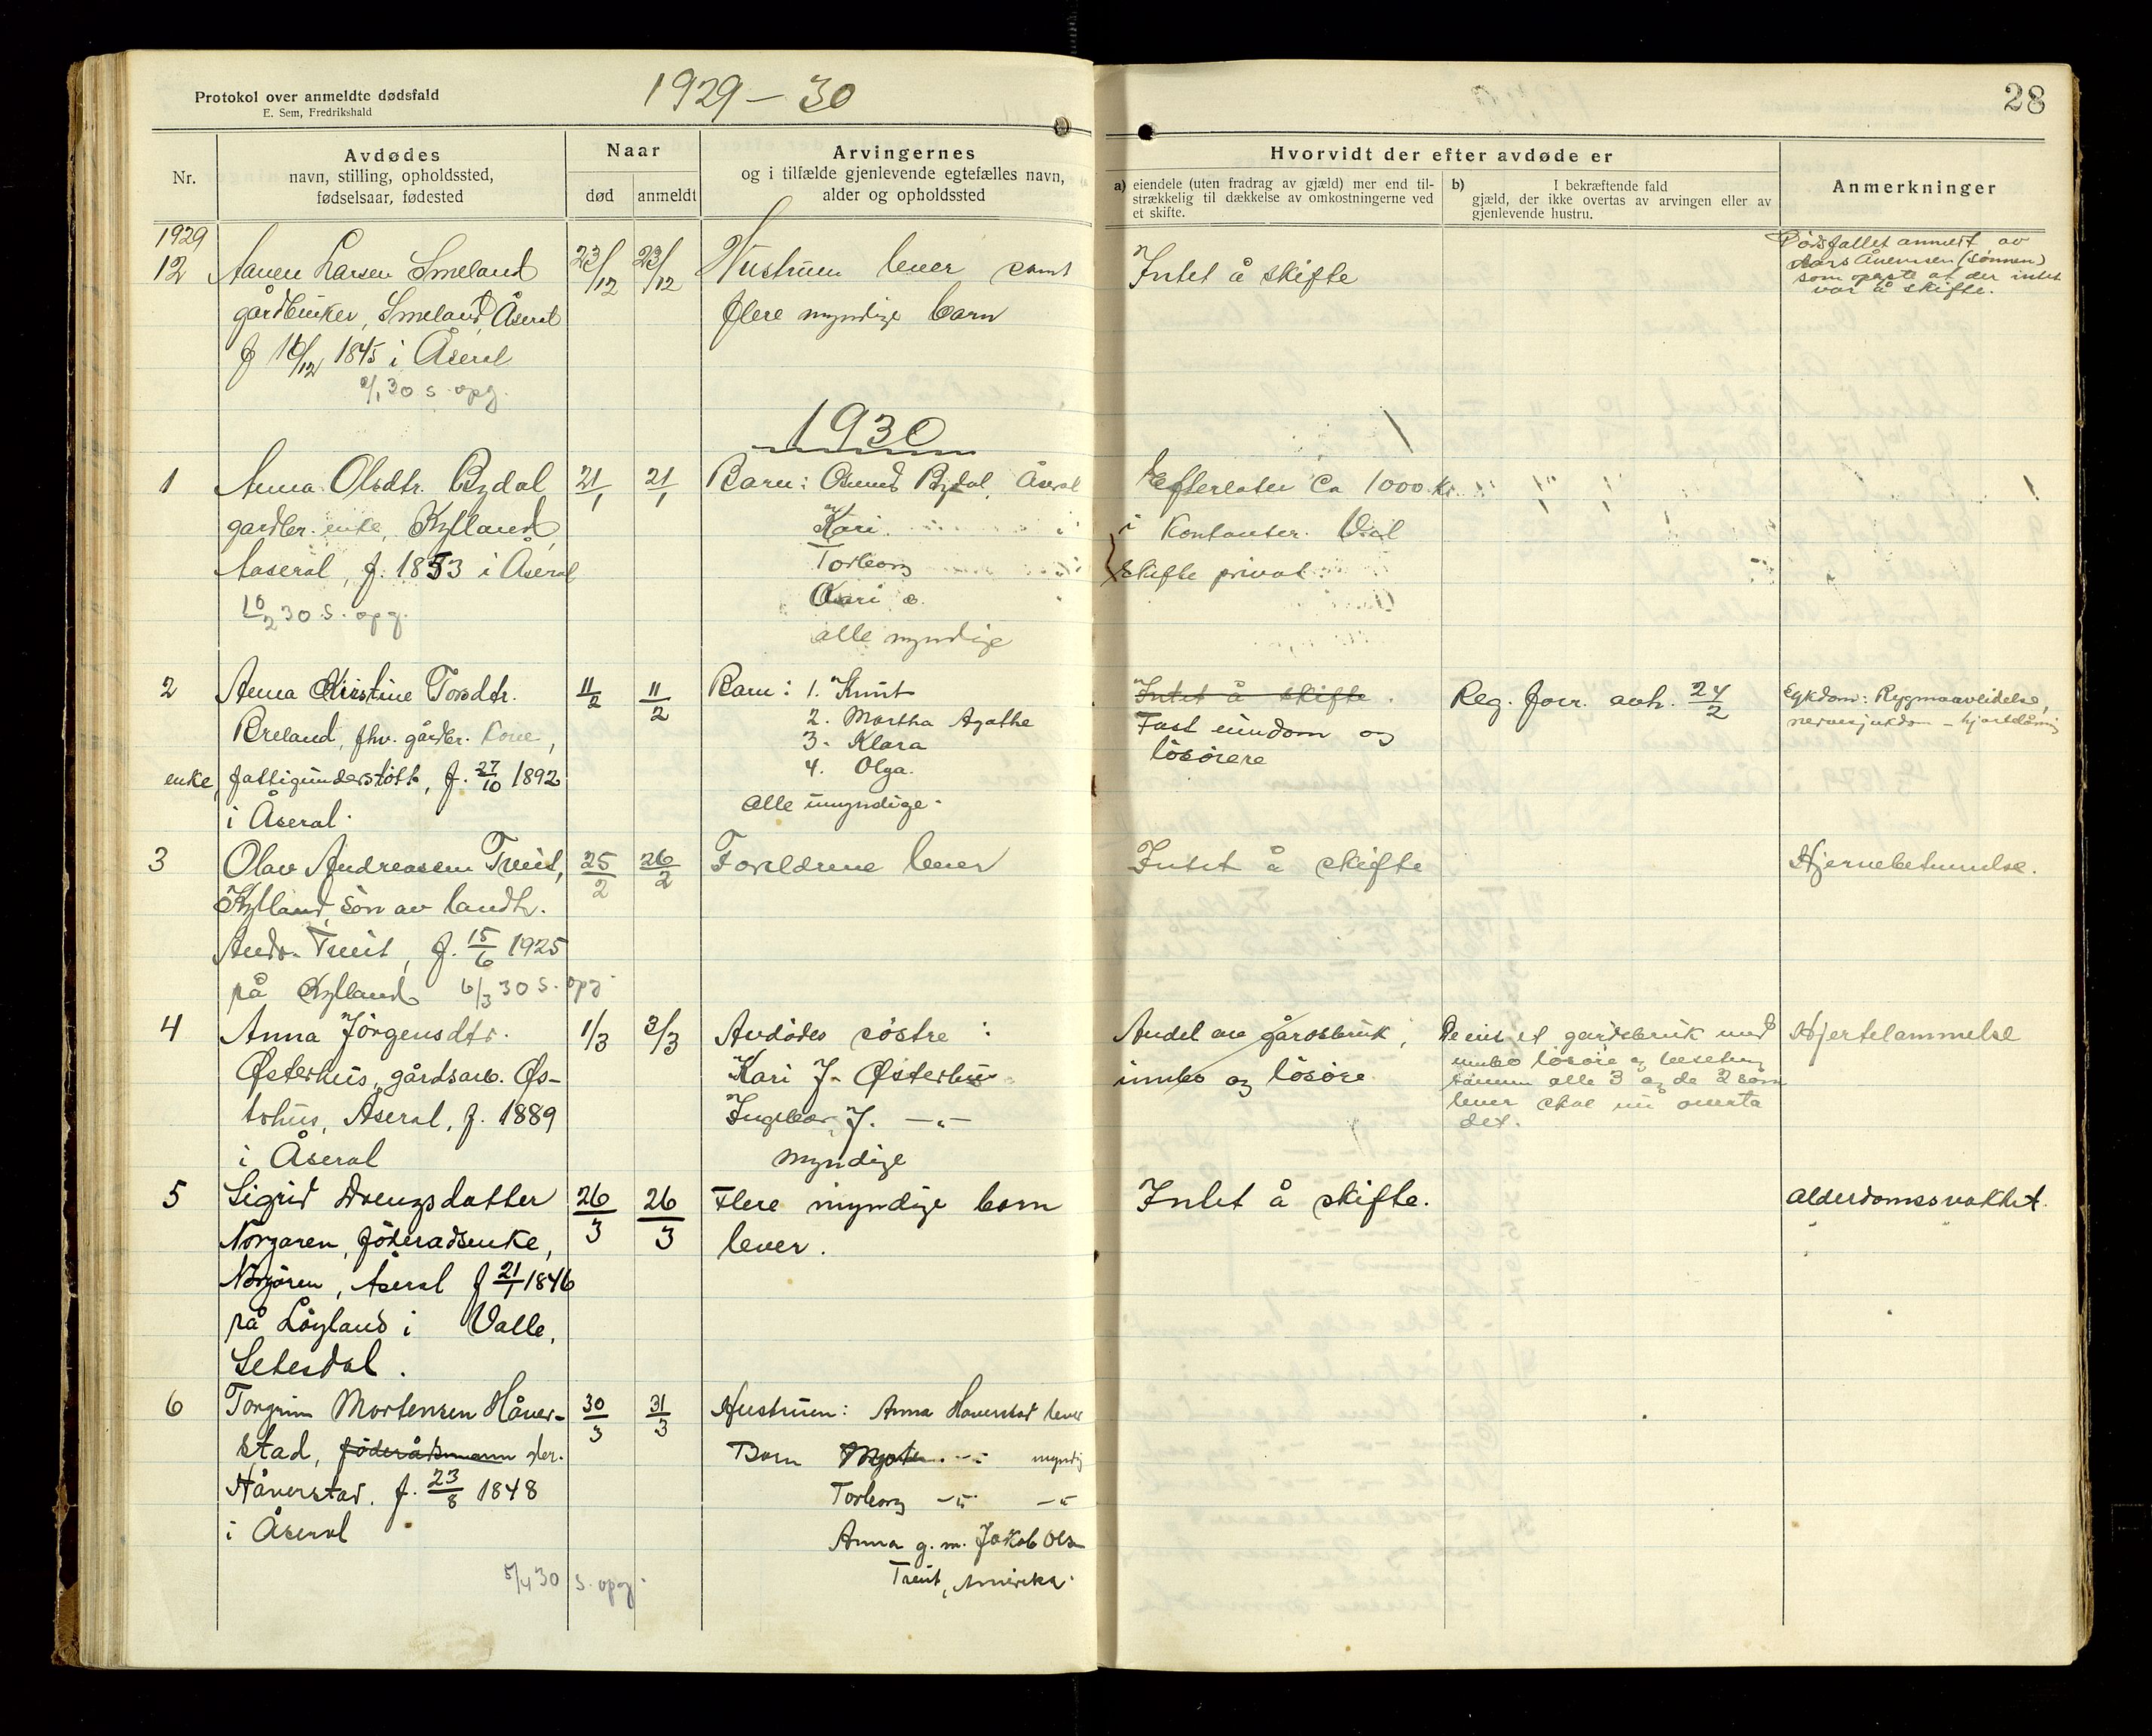 Protokol over anmeldte dødsfald
E. Sem, Fredrikshald
1929 – 30
28
Nr.
Avdødes
navn, stilling, opholdssted,
fødselsaar, fødested
Naar
død
anmeldt
Arvingernes
og i tilfælde gjenlevende egtefælles navn,
alder og opholdssted
Hvorvidt der efter avdøde er
a) eiendele (uten fradrag av gjæld) mer end til-
strækkelig til dækkelse av omkostningerne ved
et skifte.
b) I bekræftende fald
gjæld, der ikke overtas av arvingen eller av
gjenlevende hustru.
Anmerkninger
1929
12
Aanen Larsen Smeland
gårdbruker, Smeland, Åseral
f 18/12 1845 i Åseral
30 s. opg.
23/12
23/12
Hustruen lever samt
flere myndige barn
Intet å skifte
Dødsfallet anmeldt av
Lars Ånensen (sønnen)
som opgir at der intet
var å skifte.
1930
1
Anna Olsdtr. Bydal
gardbr. enke, Kylland,
Aaseral, f. 1853 i Åseral
10/2 30 s. opg.
21/1
21/1
Barn: Åsmund Bydal, Åseral
Kari
Torborg
Kari
alle myndige
Efterlater ca 1000 kr.
i kontanter. Vil
skifte privat.
2
Anna Kirstine Torsdtr.
Breland, fhv. gårdbr. kone,
enke, fattigunderstøtt, f. 27/10 1892
i Åseral.
11/2
11/2
Barn: 1. Knut
2. Martha Agathe
3. Klara
4. Olga.
alle umyndige.
Intet å skifte.
Fast eiendom og
løsørere
Reg. forr. anh. 24/2
Sykdom: Rygmarvlidelse,
nervesjukdom –
3
Olav Andreasen Tveit,
Kylland, søn av landh.
Andr. Tveit, f. 15/6 1925
på Kylland 6/3 30 s. opg.
25/2
26/2
Foreldrene lever
Intet å skifte
Hjernebetennelse.
4
Anna Jörgensdtr.
Østerhus, gårdsarb. Øs-
terhus, Åseral, f. 1889
i Åseral
1/3
3/3
Avdødes søstre:
Kari J. Østerhus
Ingebor J. –"–
myndige
Andel av gårdsbruk,
innbo og løsøre
De eiet et gardsbruk med
innbo løsøre og besetning
sammen alle 3 og de 2 som
lever skal nu overta
det.
Hjertelammelse
5
Sigrid Drengsdatter
Norgaren, föderadsenke,
Norgåren, Åseral f 21/1 1846
på Løyland i Valle,
Setesdal.
26/3
26/3
Flere myndige born
lever.
Intet å skifte.
alderdomssvakhet.
6
Torgrim Mortensen Håver-
stad, föderådsmann
Håverstad. f. 23/8 1848
i Åseral
5/4 30 s. opg.
30/3
31/3
Hustruen: Anna Haverstad lever
Born –"– myndig
Torborg –"– –"–
Anna g. m. Jakob Olsen
Tveit, Amerika.